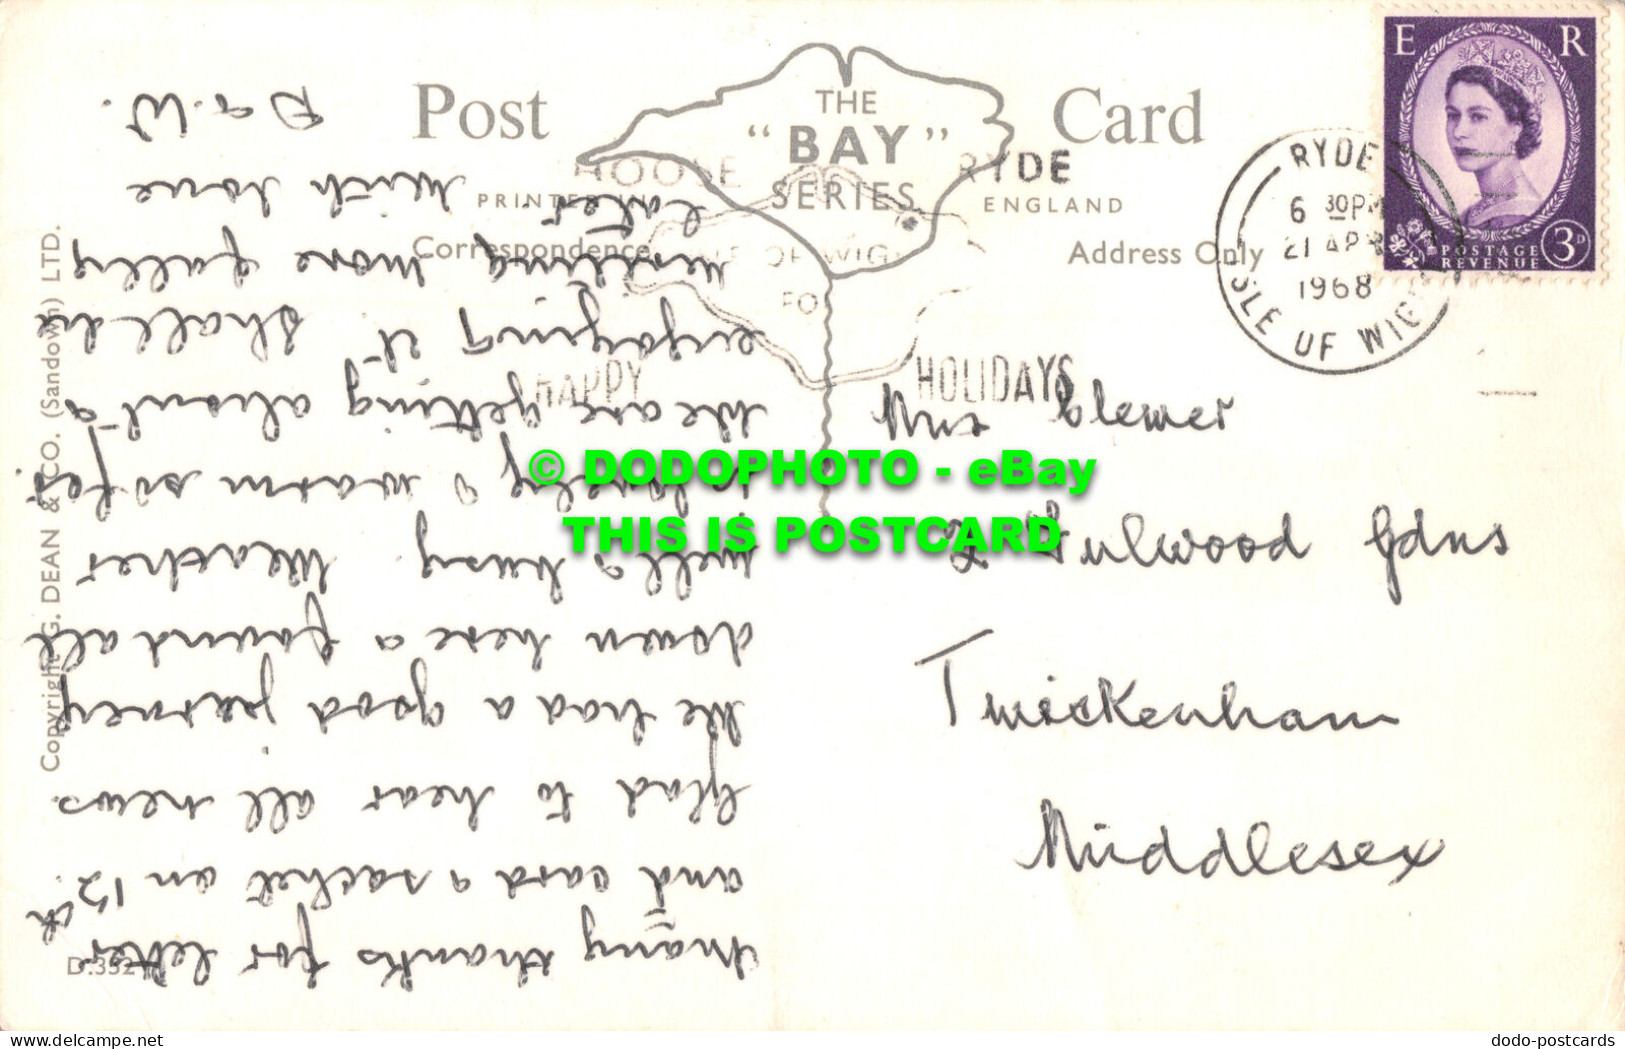 Post Card
THE
"BAY"
SERIES
PRINTED
ENGLAND
Correspondence
Address Only
E R
POSTAGE
REVENUE
3D
RYDE
6 30PM
21 APR
1968
ISLE OF WIGHT
CHOOSE RYDE
ISLE OF WIGHT
FOR
HAPPY HOLIDAYS
Mrs Clewer
2 Fulwood Gdns
Twickenham
Middlesex
Many thanks for letter
and card & sachet on 12th.
Glad to hear all news.
We had a good journey
down here & found all
well & busy. Weather
is lovely & warm so far.
We are getting about &
enjoying it. Shall be
writing more fully
later.
With love
D & W.
Copyright G. DEAN & CO. (Sandown) LTD.
© DODOPHOTO - eBay
THIS IS POSTCARD
delcampe.net
dodo-postcards